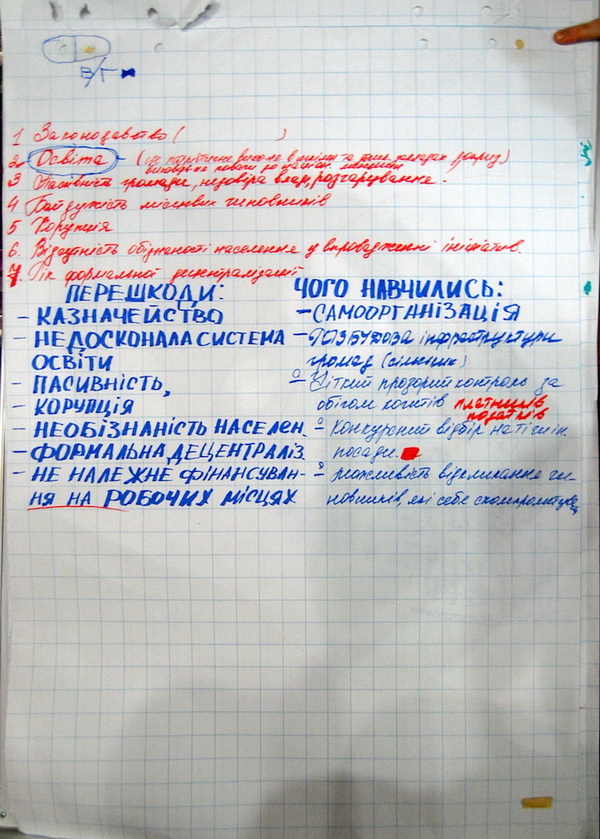 В/Г
1 Законодавство ( )
2 Освіта – (
виховання поваги до
3 Пасивність громади, недовіра влади, розчарування.
4 Байдужість місцевих чиновників
5 Корупція
6. Відсутність обізнаності населення у впровадженні ініціатив.
7. Пік формальної децентралізації
ПЕРЕШКОДИ:
– КАЗНАЧЕЙСТВО
– НЕДОСКОНАЛА СИСТЕМА
ОСВІТИ
– ПАСИВНІСТЬ,
– КОРУПЦІЯ
– НЕОБІЗНАНІСТЬ НАСЕЛЕН.
– ФОРМАЛЬНА ДЕЦЕНТРАЛІЗ.
– НЕ НАЛЕЖНЕ ФІНАНСУВАН-
НЯ НА РОБОЧИХ МІСЦЯХ
ЧОГО НАВЧИЛИСЬ:
– САМООРГАНІЗАЦІЯ
– РОЗБУДОВА інфраструктури
громад (сільських)
– Чіткий прозорий контроль за
обігом коштів платників
податків
– Конкурсний відбір на
посади
– можливість відкликання чи-
новників, які себе скомпрометув.